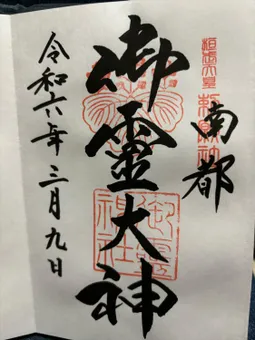 南都
御靈大神
令和六年三月九日
御霊神社